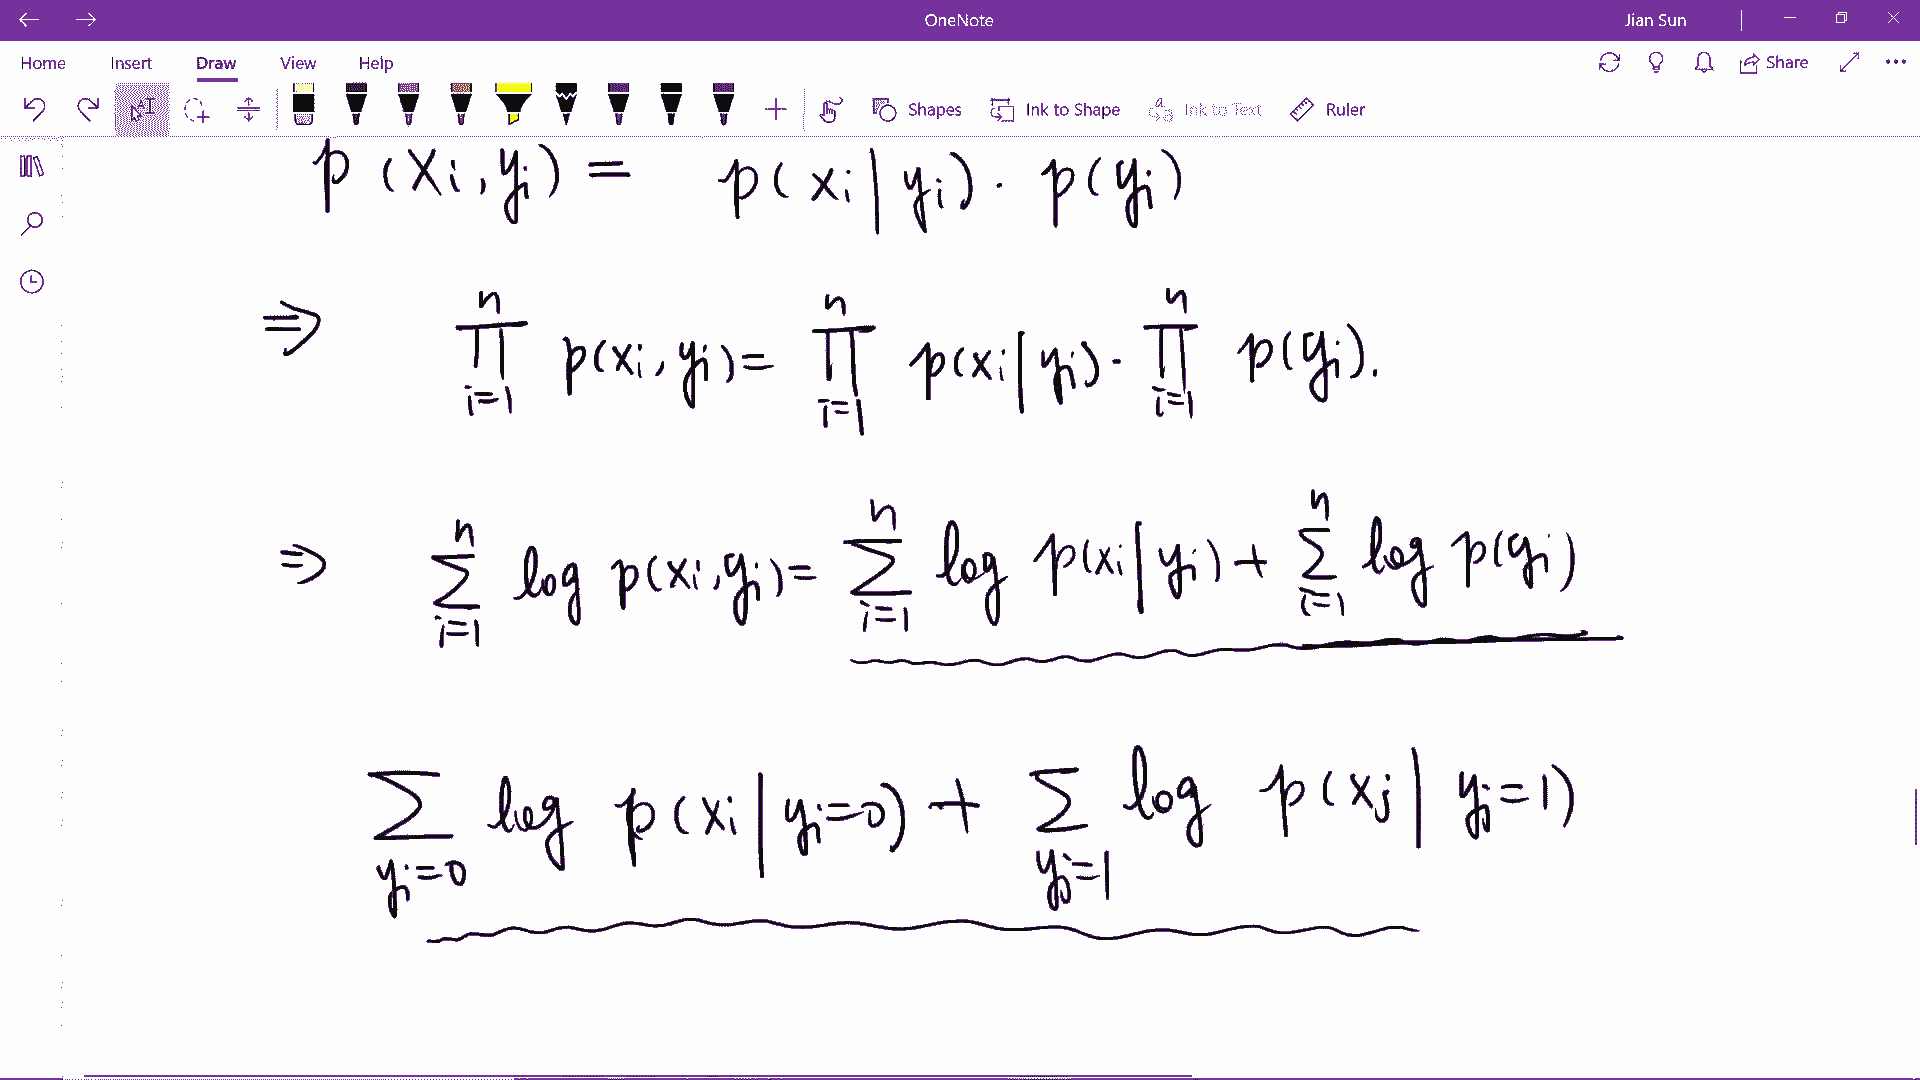 OneNote
Jian Sun
Home Insert Draw View Help
Share
Shapes Ink to Shape Ink to Text Ruler
p(xi, yi) = p(xi | yi) · p(yi)
⇒ ∏_{i=1}^{n} p(xi, yi) = ∏_{i=1}^{n} p(xi | yi) · ∏_{i=1}^{n} p(yi).
⇒ ∑_{i=1}^{n} log p(xi, yi) = ∑_{i=1}^{n} log p(xi | yi) + ∑_{i=1}^{n} log p(yi)
∑_{yi=0} log p(xi | yi=0) + ∑_{yj=1} log p(xj | yj=1)